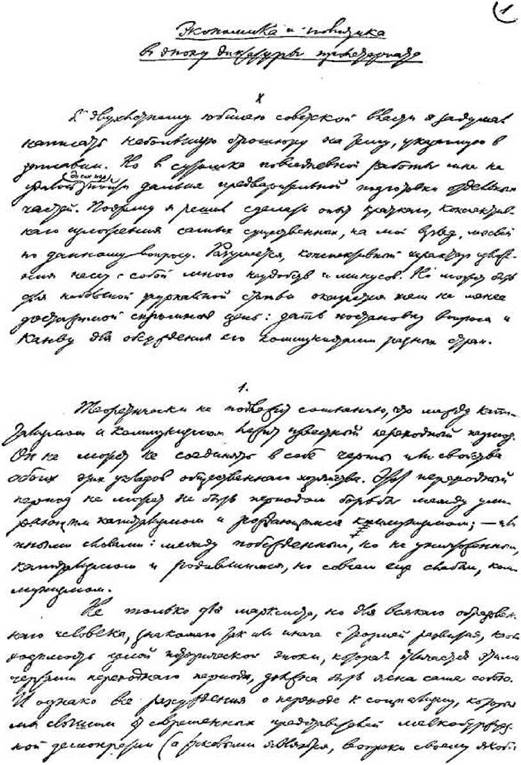 1
Экономика и политика
в эпоху диктатуры пролетариата
X
К двухлетнему юбилею советской власти я задумал
написать небольшую брошюру на тему, указанную в
заглавии. Но в сутолоке повседневной работы мне не
удалось до сих пор пойти дальше предварительной подготовки отдельных
частей. Поэтому я решил сделать опыт краткого, конспектив-
ного изложения самых существенных, на мой взгляд, мыслей
по данному вопросу. Разумеется, конспективный характер изложе-
ния несет с собой много неудобств и минусов. Но может быть
для небольшой журнальной статьи окажется тем не менее
достижимой скромная цель: дать постановку вопроса и
канву для обсуждения его коммунистами разных стран.
1.
Теоретически не подлежит сомнению, что между капи-
тализмом и коммунизмом лежит известный переходный период.
Он не может не соединять в себе черты или свойства
обоих этих укладов общественного хозяйства. Этот переходный
период не может не быть периодом борьбы между уми-
рающим капитализмом и рождающимся коммунизмом; — или
иными словами: между побежденным, но не уничтоженным,
капитализмом и родившимся, но совсем еще слабым, ком-
мунизмом.
Не только для марксиста, но для всякого образован-
ного человека, знакомого так или иначе с теорией развития, необ-
ходимость целой исторической эпохи, которая отличается этими
чертами переходного периода, должна быть ясна сама собою.
И однако все рассуждения о переходе к социализму, которые
мы слышим от современных представителей мелкобуржуаз-
ной демократии (а таковыми являются, вопреки своему якобы